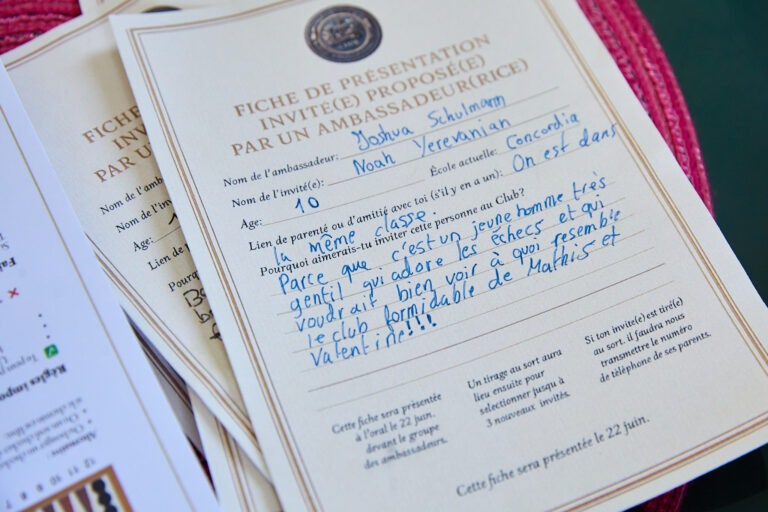 FICHE DE PRÉSENTATION
INVITÉ(E) PROPOSÉ(E)
PAR UN AMBASSADEUR(RICE)
Nom de l'ambassadeur: Joshua Schulmann
Nom de l'invité(e): Noah Yerevanian
Age: 10 École actuelle: Concordia
Lien de parenté ou d'amitié avec toi (s'il y en a un): On est dans
la même classe.
Pourquoi aimerais-tu inviter cette personne au Club?
Parce que c'est un jeune homme très
gentil qui adore les échecs et qui
voudrait bien voir à quoi resemble
le club formidable de Mathis et
Valentine!!!
Cette fiche sera présentée
à l'oral le 22 juin.
devant le groupe
des ambassadeurs.
Un tirage au sort aura
lieu ensuite pour
selectionner jusqu'à
3 nouveaux invités.
Si ton invite(e) est tiré(e)
au sort. il faudra nous
transmettre le numéro
de téléphone de ses parents.
Cette fiche sera présentée le 22 juin.
FICHE
INVIT
PAR UN
Nom de l'amb
Nom de l'inv
Age: 1
Lien de p
Pourq
Règles impo
12 11 10 9 8